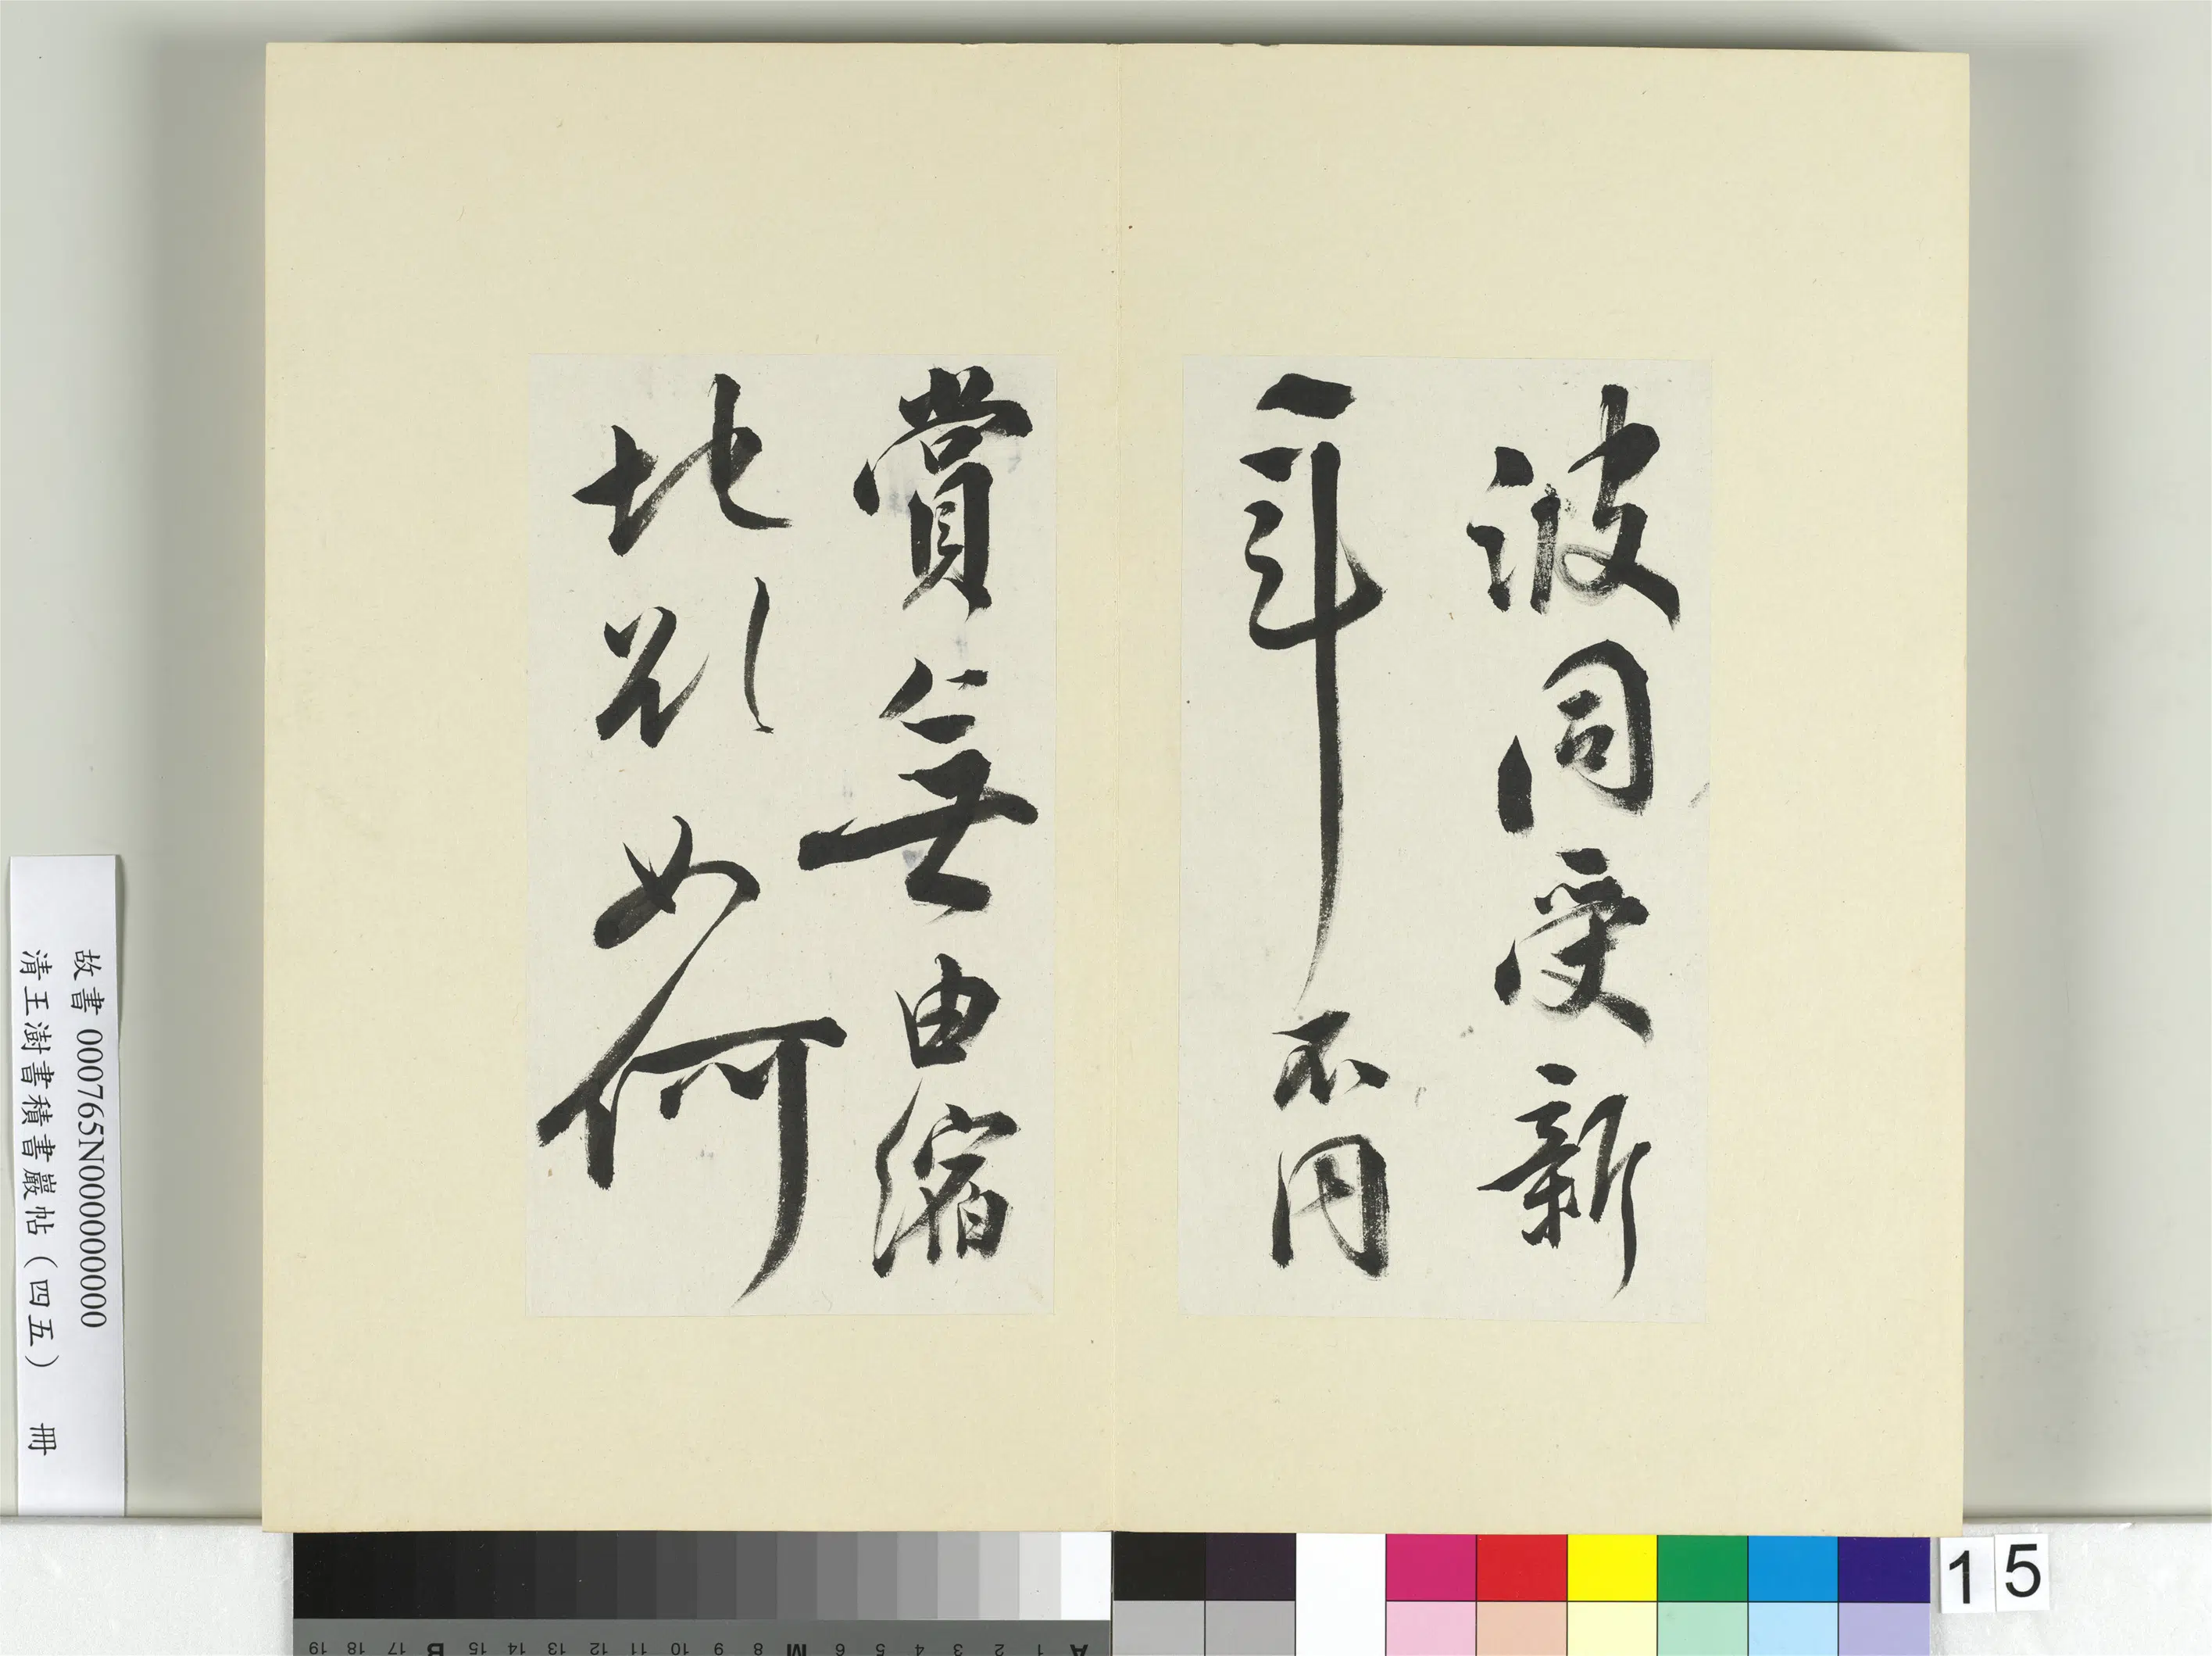 波同受新
年不同
賞無由縮
地欲如何
故書 000765N000000000
清王澍書積書巖帖（四五） 冊
15
A 1 2 3 4 5 6 M 8 9 10 11 12 13 14 15 B 17 18 19